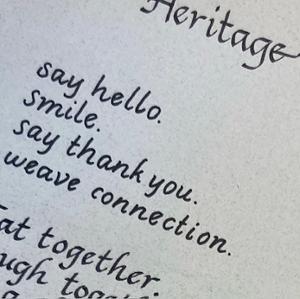 Heritage
say hello.
smile.
say thank you.
weave connection.
together